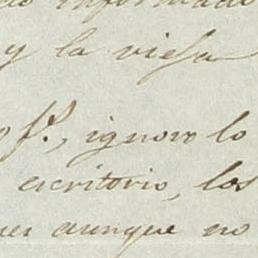 informado
y la vieja
of.º, ignoro lo
escritorio, los
aunque no